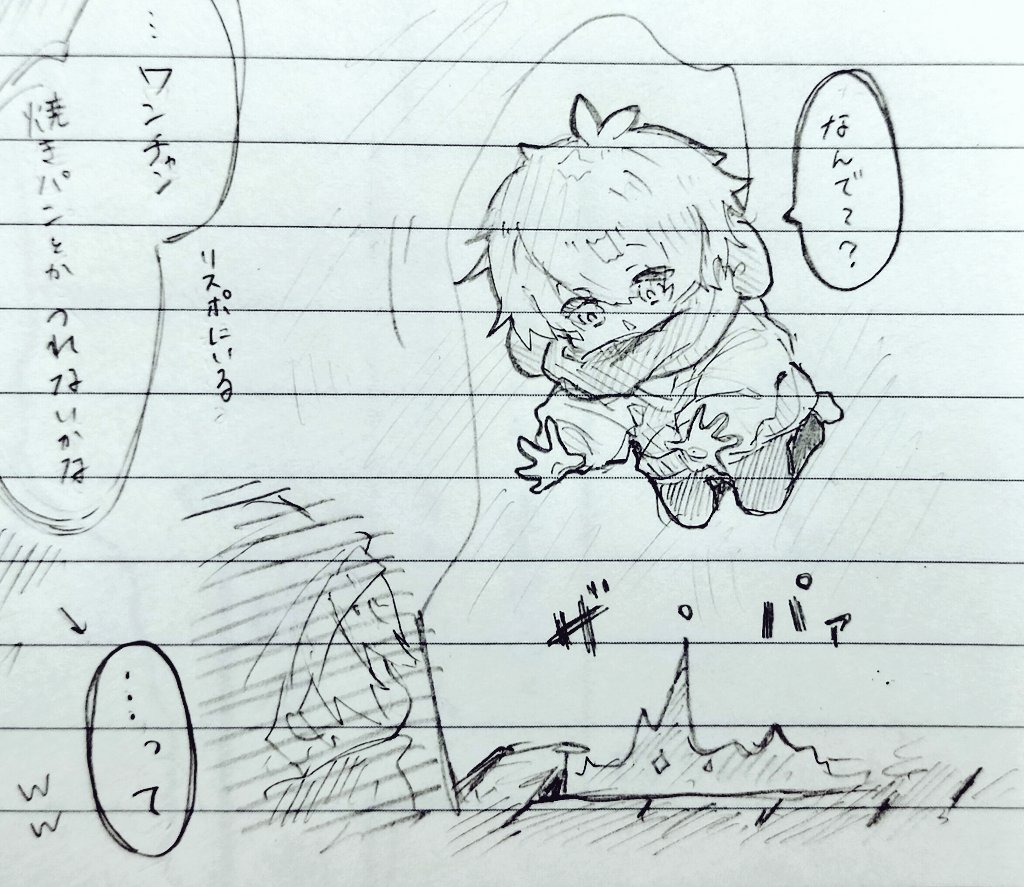 なんでて?
…ワンチャン
焼きパンとかつれないかな
リスポにいる
ザパァ
……って
ww